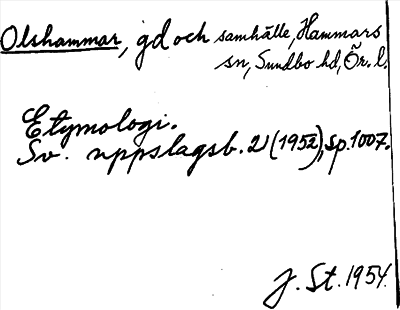 Olshammar, gd och samhälle, Hammars
sn, Sundbo hd, Ör. l.
Etymologi.
Sv. uppslagsb. 21 (1952), sp. 1007.
J. St. 1954.